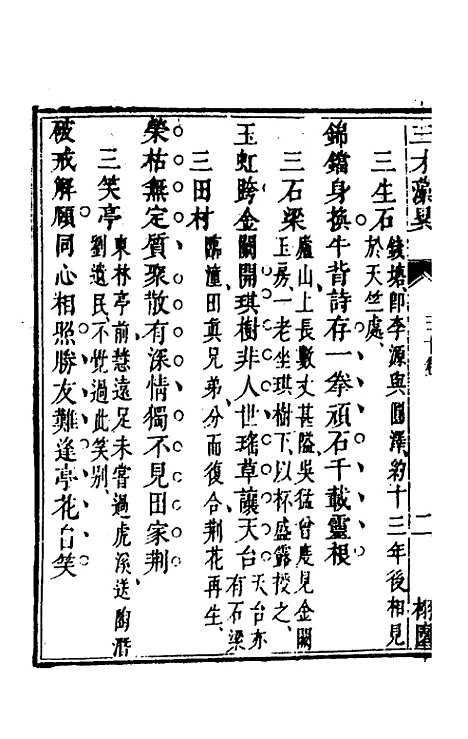 三才藻異
三十卷
二
栩園
三生石
錢塘、即李源與圓澤、約十三年後相見
於天竺處、
錦鐺身換牛背詩存一拳頑石千載靈根
三石梁
廬山、上長數丈甚隘、吳猛曾度見金闕
玉房、一老坐琪樹下、以杯盛露授之、
玉虹跨金闕開琪樹非人世瑤草讓天台
天台亦
有石梁
三田村
臨潼田真兄弟、分而復合、荆花再生、
榮枯無定質聚散有深情獨不見田家荆
三笑亭
東林亭前、慧遠足未嘗過虎溪、送陶潛
劉遺民、不覺過此笑別、
破戒解願同心相照勝友難逢亭花台笑